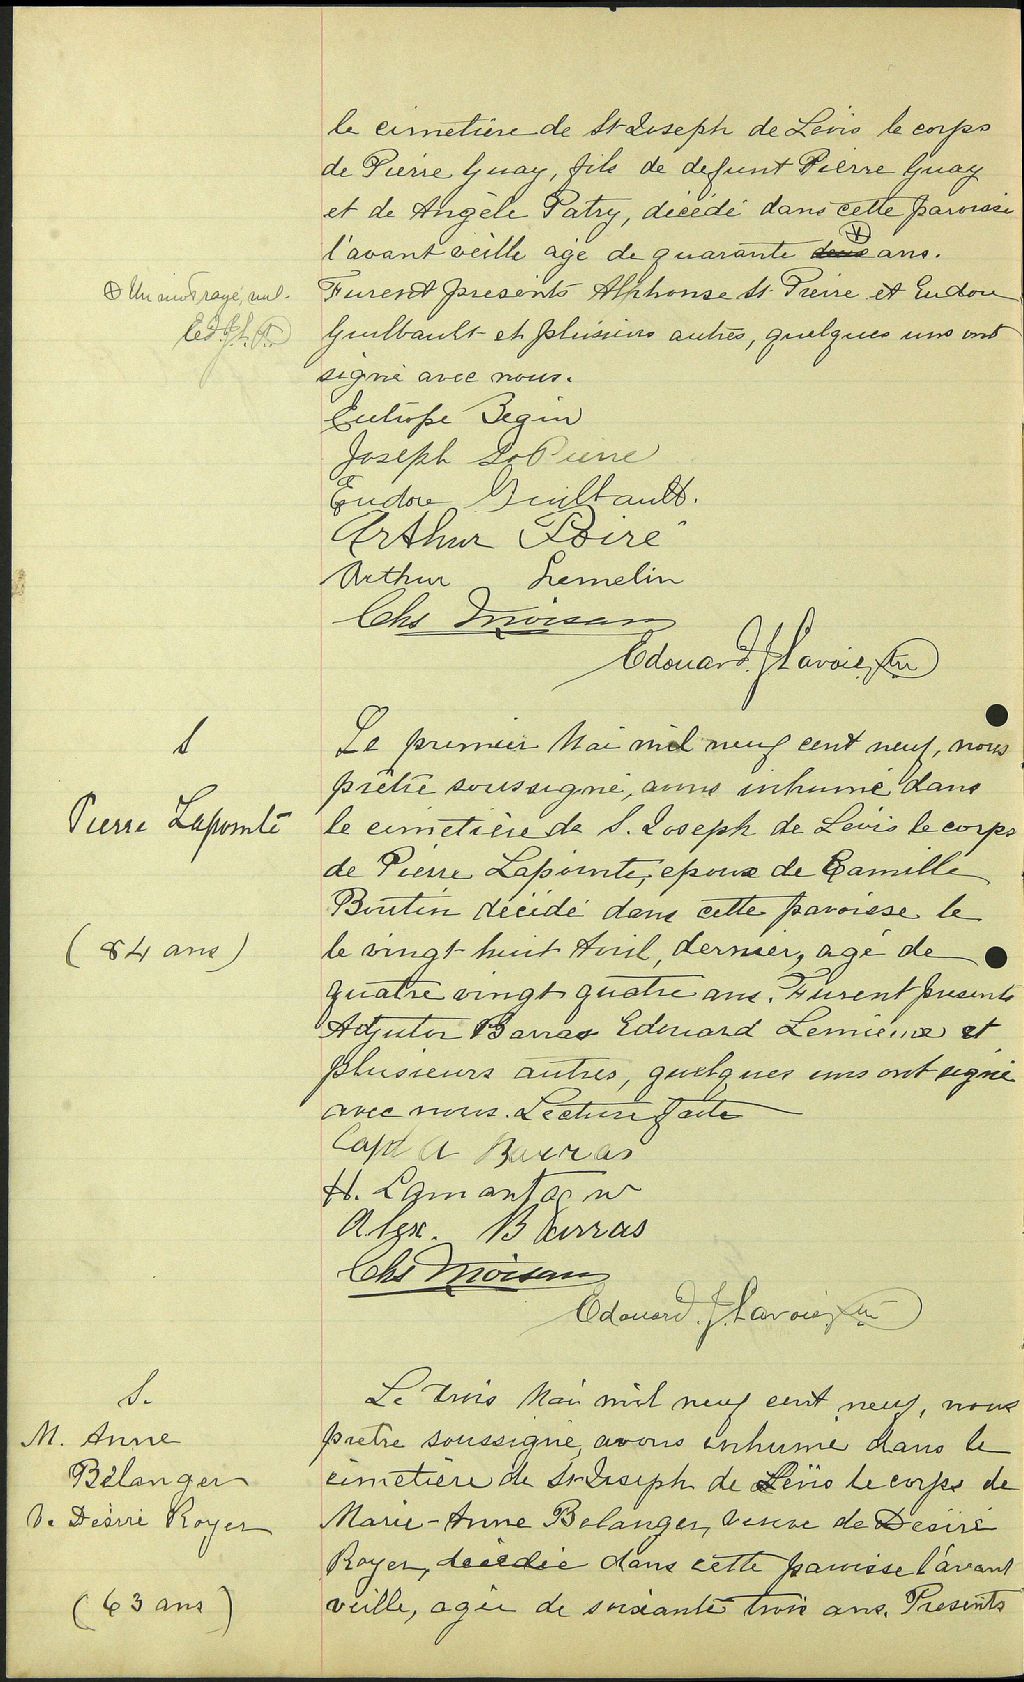 le cimetière de St Joseph de Lévis le corps
de Pierre Guay, fils de defunt Pierre Guay
et de Angèle Patry, décédé dans cette paroisse
l'avant veille agé de quarante deux ans.
⊕ Un mot rayé, nul.
Ed. J. L. Ptr
Furent présents Alphonse St Pierre et Eudore
Guilbault et plusieurs autres, quelques uns ont
signé avec nous.
Eutrope Begin
Joseph St Pierre
Eudore Guilbault.
Arthur Poiré
Arthur Lemelin
Chs Moisan
Edouard. J Lavoie, Ptr
S
Pierre Lapointe
(84 ans)
Le premier Mai mil neuf cent neuf, nous
prêtre soussigné, avons inhumé dans
le cimetière de S. Joseph de Lévis le corps
de Pierre Lapointe, epoux de Camille
Boutin décédé dans cette paroisse le
le vingt huit Avril, dernier, agé de
quatre vingt quatre ans. Furent presents
Adjutor Barras Edouard Lemieux et
plusieurs autres, quelques uns ont signé
avec nous. Lecture faite
Capt A Barras
H. Lamontagne
Alex. Barras
Chs Moisan
Edouard. J. Lavoie, Ptr
S.
M. Anne
Bélanger
V. Désiré Royer
(63 ans)
Le trois Mai mil neuf cent neuf, nous
prêtre soussigné, avons inhumé dans le
cimetière de St Joseph de Lévis le corps de
Marie-Anne Belanger, veuve de Desiré
Royer, décédée dans cette paroisse l'avant
veille, agée de soixante trois ans. Presents